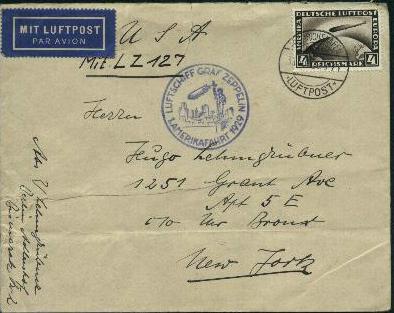 MIT LUFTPOST
PAR AVION
U S A
Mit LZ 127
DEUTSCHE LUFTPOST
EUROPA
AMERIKA
4 REICHSMARK 4
LUFTPOST
LUFTSCHIFF GRAF ZEPPELIN
1. AMERIKAFAHRT 1929
Herrn
Hugo Lehmgrübner
1251 Grant Ave
Apt 5 E
c/o Bronx
New York
Abs Lehmgrübner
Berlin